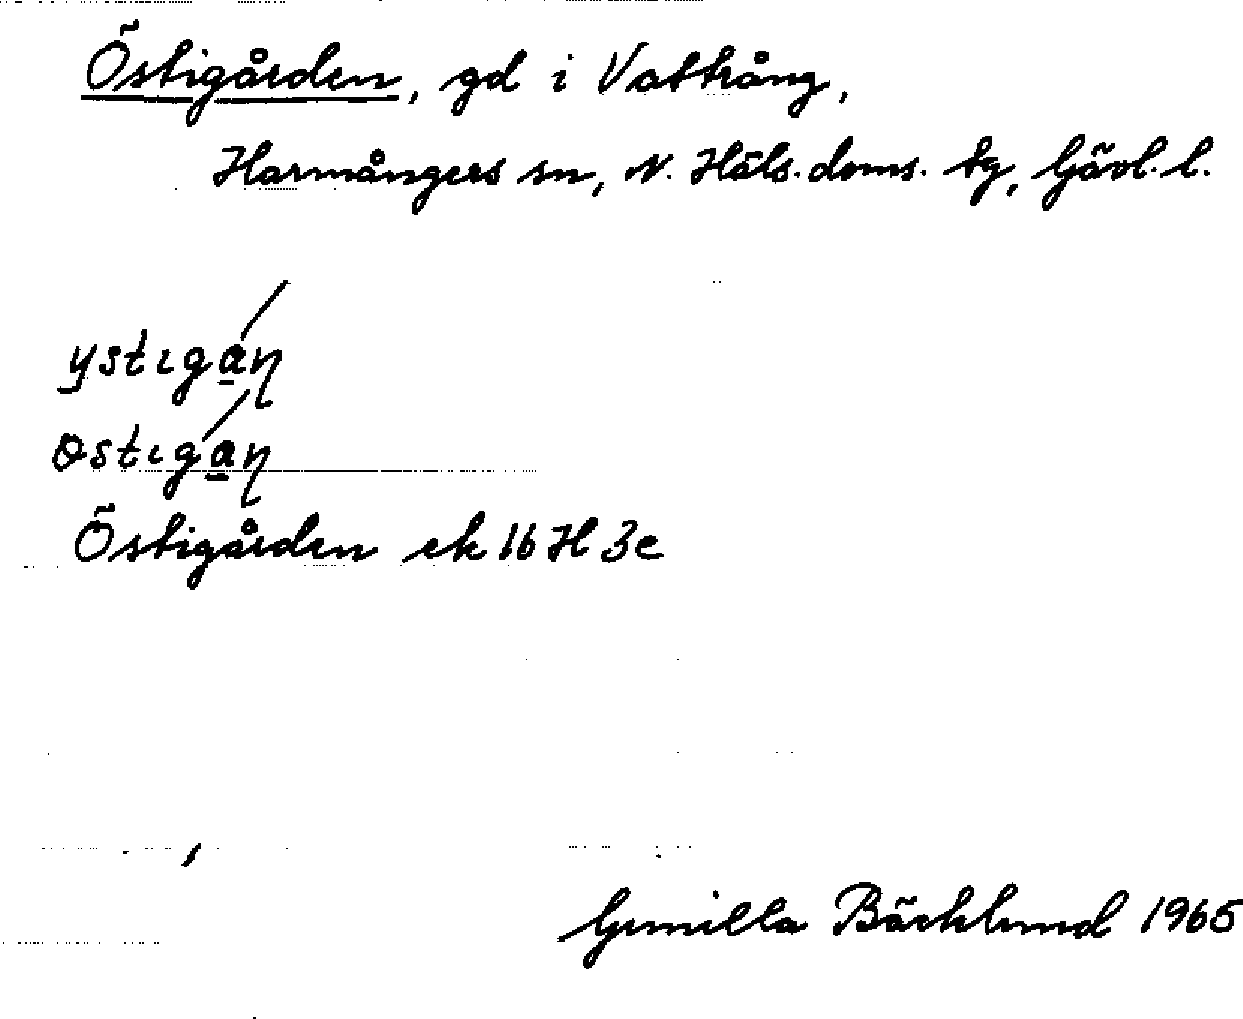 Östigården, gd i Vattrång,
Harmångers sn, N. Häls. doms. tg, Gävl. l.
ystıga̲ṇ
ɵstıga̲ṇ
Östigården ek 16 H 3e
Gunilla Bäcklund 1965